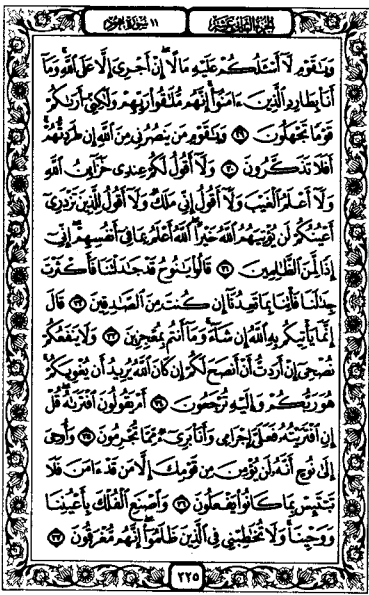 الجزء الثاني عشر
١١ سورة هود
وَيَٰقَوْمِ لَآ أَسْـَٔلُكُمْ عَلَيْهِ مَالًا ۖ إِنْ أَجْرِىَ إِلَّا عَلَى ٱللَّهِ ۚ وَمَآ
أَنَا۠ بِطَارِدِ ٱلَّذِينَ ءَامَنُوٓا۟ ۚ إِنَّهُم مُّلَٰقُوا۟ رَبِّهِمْ وَلَٰكِنِّىٓ أَرَىٰكُمْ
قَوْمًا تَجْهَلُونَ ٢٩ وَيَٰقَوْمِ مَن يَنصُرُنِى مِنَ ٱللَّهِ إِن طَرَدتُّهُمْ ۚ
أَفَلَا تَذَكَّرُونَ ٣٠ وَلَآ أَقُولُ لَكُمْ عِندِى خَزَآئِنُ ٱللَّهِ
وَلَآ أَعْلَمُ ٱلْغَيْبَ وَلَآ أَقُولُ إِنِّى مَلَكٌ وَلَآ أَقُولُ لِلَّذِينَ تَزْدَرِىٓ
أَعْيُنُكُمْ لَن يُؤْتِيَهُمُ ٱللَّهُ خَيْرًا ۖ ٱللَّهُ أَعْلَمُ بِمَا فِىٓ أَنفُسِهِمْ ۖ إِنِّىٓ
إِذًا لَّمِنَ ٱلظَّٰلِمِينَ ٣١ قَالُوا۟ يَٰنُوحُ قَدْ جَٰدَلْتَنَا فَأَكْثَرْتَ
جِدَٰلَنَا فَأْتِنَا بِمَا تَعِدُنَآ إِن كُنتَ مِنَ ٱلصَّٰدِقِينَ ٣٢ قَالَ
إِنَّمَا يَأْتِيكُم بِهِ ٱللَّهُ إِن شَآءَ وَمَآ أَنتُم بِمُعْجِزِينَ ٣٣ وَلَا يَنفَعُكُمْ
نُصْحِىٓ إِنْ أَرَدتُّ أَنْ أَنصَحَ لَكُمْ إِن كَانَ ٱللَّهُ يُرِيدُ أَن يُغْوِيَكُمْ ۚ
هُوَ رَبُّكُمْ وَإِلَيْهِ تُرْجَعُونَ ٣٤ أَمْ يَقُولُونَ ٱفْتَرَىٰهُ ۖ قُلْ
إِنِ ٱفْتَرَيْتُهُۥ فَعَلَىَّ إِجْرَامِى وَأَنَا۠ بَرِىٓءٌ مِّمَّا تُجْرِمُونَ ٣٥ وَأُوحِىَ
إِلَىٰ نُوحٍ أَنَّهُۥ لَن يُؤْمِنَ مِن قَوْمِكَ إِلَّا مَن قَدْ ءَامَنَ فَلَا
تَبْتَئِسْ بِمَا كَانُوا۟ يَفْعَلُونَ ٣٦ وَٱصْنَعِ ٱلْفُلْكَ بِأَعْيُنِنَا
وَوَحْيِنَا وَلَا تُخَٰطِبْنِى فِى ٱلَّذِينَ ظَلَمُوٓا۟ ۚ إِنَّهُم مُّغْرَقُونَ ٣٧
٢٢٥